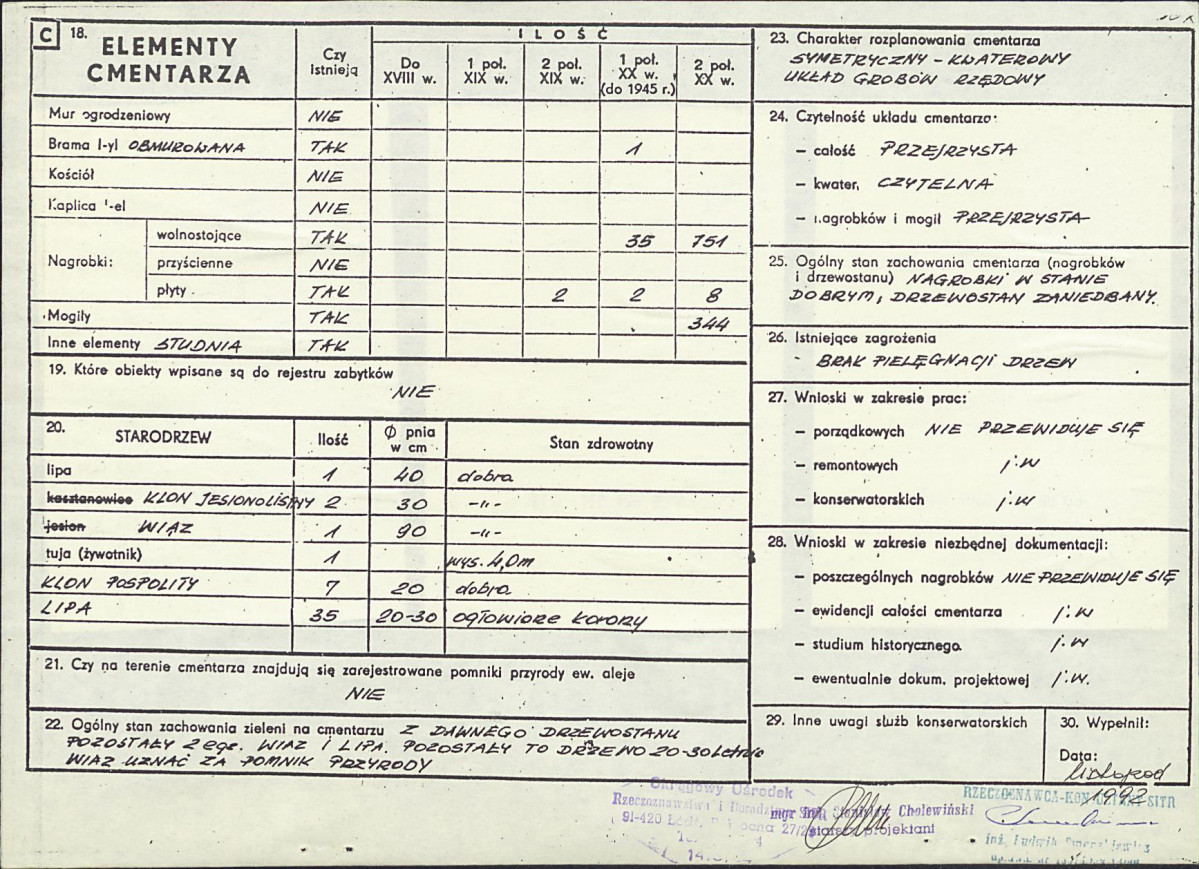 C 18. ELEMENTY CMENTARZA
Czy istnieją
ILOŚĆ
Do XVIII w.
1 poł. XIX w.
2 poł. XIX w.
1 poł. XX w. (do 1945 r.)
2 poł. XX w.
Mur ogrodzeniowy NIE
Brama 1-yl OBMUROWANA TAK 1
Kościół NIE
Kaplica NIE
Nagrobki: wolnostojące TAK 35 751
przyścienne NIE
płyty TAK 2 2 8
Mogiły TAK 344
Inne elementy STUDNIA TAK
19. Które obiekty wpisane są do rejestru zabytków
NIE
20. STARODRZEW Ilość Ø pnia w cm Stan zdrowotny
lipa 1 40 dobra
kasztanowiec KLON JESIONOLISTNY 2 30 -„-
jesion WIĄZ 1 90 -„-
tuja (żywotnik) 1 wys. 4,0m
KLON POSPOLITY 7 20 dobra
LIPA 35 20-30 ogłowione korony
21. Czy na terenie cmentarza znajdują się zarejestrowane pomniki przyrody ew. aleje
NIE
22. Ogólny stan zachowania zieleni na cmentarzu Z DAWNEGO DRZEWOSTANU
POZOSTAŁY 2 egz. WIAZ I LIPA. POZOSTAŁY TO DRZEWO 20-30 Letnie
WIAZ UZNAĆ ZA POMNIK PRZYRODY
23. Charakter rozplanowania cmentarza
SYMETRYCZNY - KWATEROWY
UKŁAD GROBÓW RZĘDOWY
24. Czytelność układu cmentarza:
- całość PRZEJRZYSTA
- kwater, CZYTELNA
- nagrobków i mogił PRZEJRZYSTA
25. Ogólny stan zachowania cmentarza (nagrobków
i drzewostanu) NAGROBKI W STANIE
DOBRYM, DRZEWOSTAN ZANIEDBANY.
26. Istniejące zagrożenia
- BRAK PIELĘGNACJI DRZEW
27. Wnioski w zakresie prac:
- porządkowych NIE PRZEWIDUJE SIĘ
- remontowych j.w
- konserwatorskich j.w
28. Wnioski w zakresie niezbędnej dokumentacji:
- poszczególnych nagrobków NIE PRZEWIDUJE SIĘ
- ewidencji całości cmentarza j.w
- studium historycznego j.w
- ewentualnie dokum. projektowej j.w.
29. Inne uwagi służb konserwatorskich
30. Wypełnił:
Data:
listopad
1992
Okręgowy Ośrodek
Rzeczoznawstwa i Doradztwa
91-420 Łódź, 27/29
mgr inż. Stanisław Cholewiński
starszy projektant
RZECZOZNAWCA-KONSULTANT SITR
inż. Ludwik